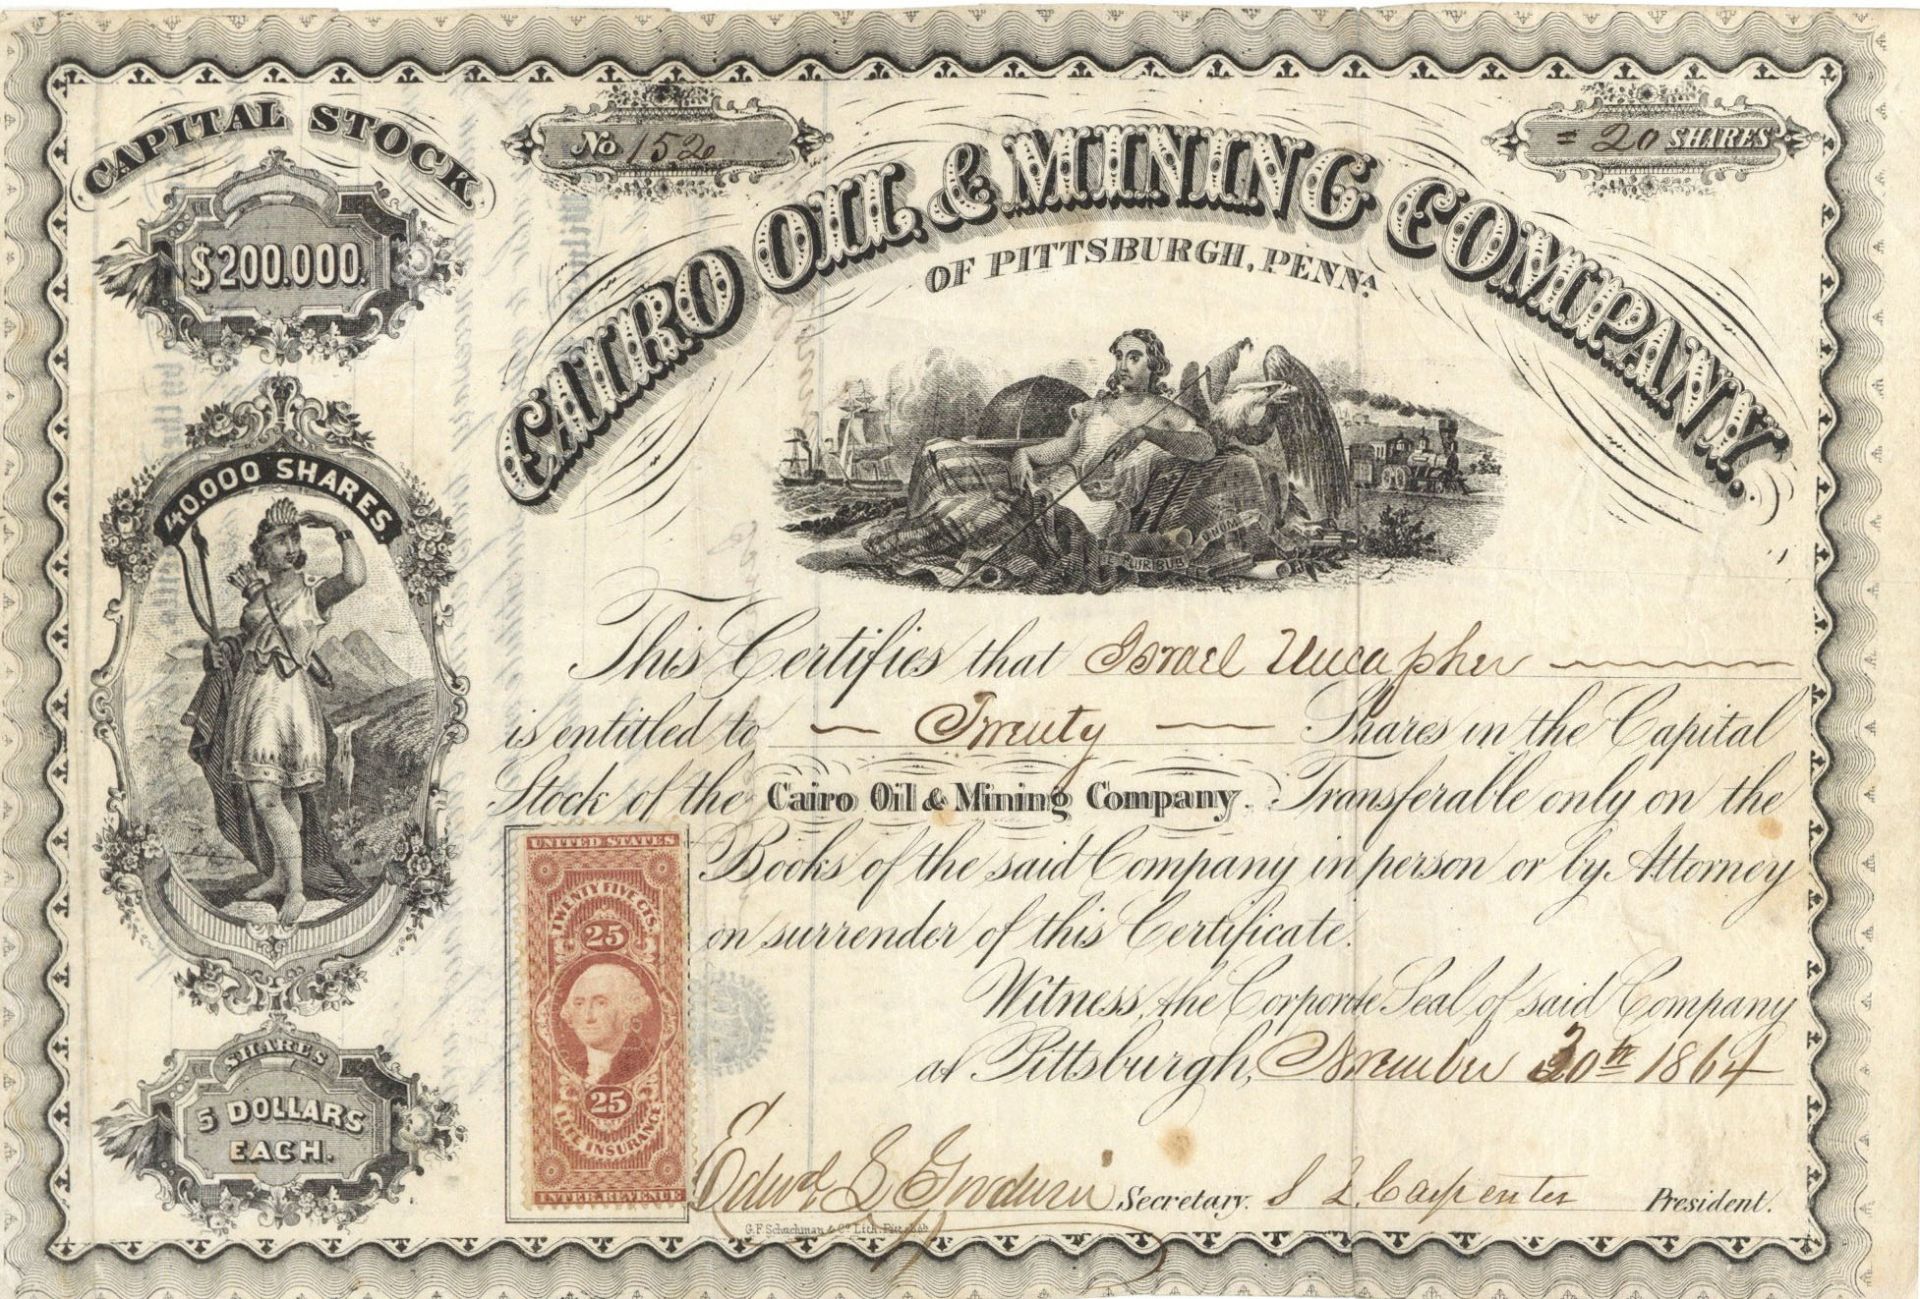 CAPITAL STOCK
$200.000.
40.000 SHARES.
SHARES
5 DOLLARS
EACH.
No 152
= 20 SHARES
CAIRO OIL & MINING COMPANY.
OF PITTSBURGH, PENNA.
E PLURIBUS UNUM
This Certifies that Israel Uncapher
is entitled to Twenty Shares in the Capital
Stock of the Cairo Oil & Mining Company. Transferable only on the
Books of the said Company in person or by Attorney
on surrender of this Certificate.
Witness, the Corporate Seal of said Company
at Pittsburgh, November 30th 1864
UNITED STATES
TWENTY FIVE CTS.
25
25
LIFE INSURANCE
INTER. REVENUE
Edwd S Goodwin Secretary. S L Carpenter President.
G.F. Schuchman & Co. Lith. Pittsbgh